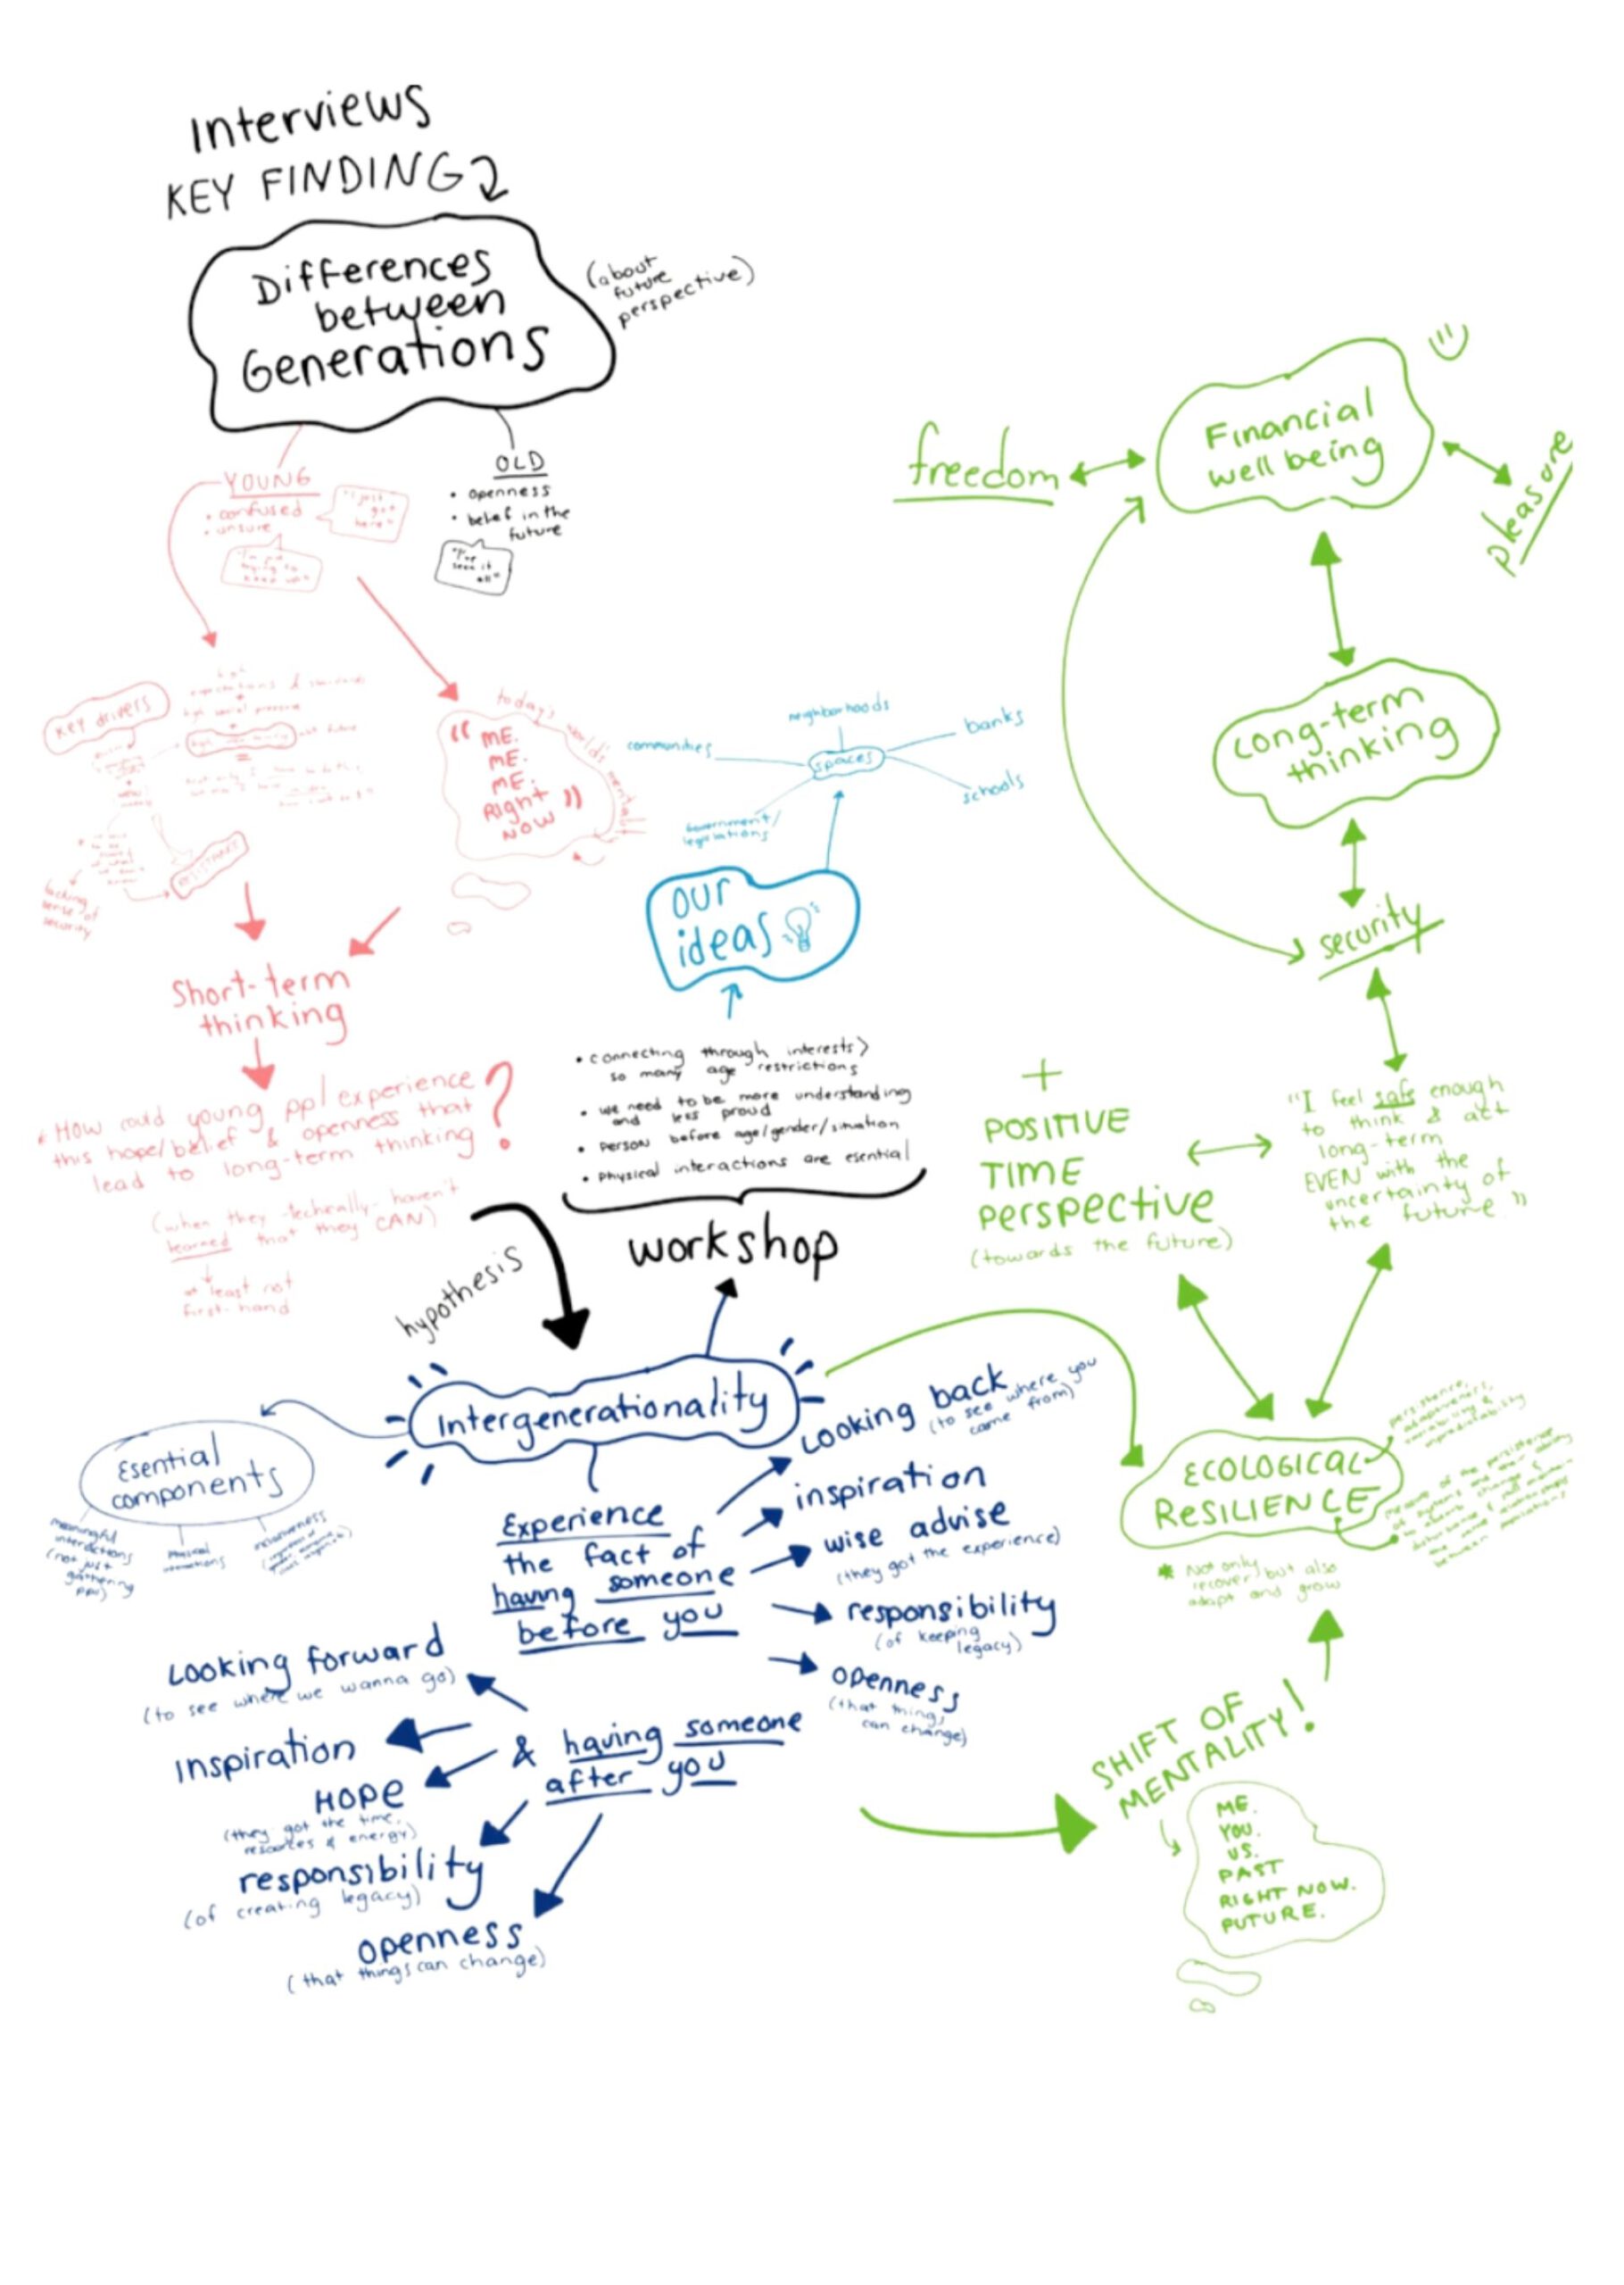 Interviews
KEY FINDING
Differences
between
Generations
(about
future
perspective)
YOUNG
• confused
• unsure
"I just
got
here"
OLD
• openness
• belief in the
future
"I've
seen it
all"
KEY drivers
expectations &
high social pressure
future
RESISTANT
lacking
sense of
security
today's world's mentality
"ME.
ME.
ME.
Right
NOW"
Short-term
thinking
* How could young ppl experience
this hope/belief & openness that
lead to long-term thinking ?
(when they -techically- haven't
learned that they CAN)
at least not
first-hand
hypothesis
neighborhoods
communities
banks
spaces
schools
Government/
legislations
our
ideas
• connecting through interests>
so many age restrictions
• we need to be more understanding
and less proud
• Person before age/gender/situation
• Physical interactions are esential
workshop
Intergenerationality
Esential
components
meaningful
interactions
(not just
gathering
ppl)
Physical
interactions
inclusiveness
Experience
the fact of
having someone
before you
Looking back
(to see where you
came from)
inspiration
wise advise
(they got the experience)
responsibility
(of keeping
legacy)
openness
(that things
can change)
& having someone
after you
Looking forward
(to see where we wanna go)
inspiration
HOPE
(they got the time,
resources & energy)
responsibility
(of creating legacy)
openness
(that things can change)
Financial
well being
freedom
pleasure
Long-term
thinking
security
"I feel safe enough
to think & act
long-term
EVEN with the
uncertainty of
the future"
+
POSITIVE
TIME
perspective
(towards the future)
ECOLOGICAL
RESILIENCE
persistence,
adaptiveness,
variability &
unpredictability
measure of the persistence
of systems and their ability
to absorb change &
disturbance & still maintain
the same relationships
between populations
* Not only
recover, but also
adapt and grow
SHIFT OF
MENTALITY!
ME.
YOU.
US.
PAST
RIGHT NOW.
FUTURE.